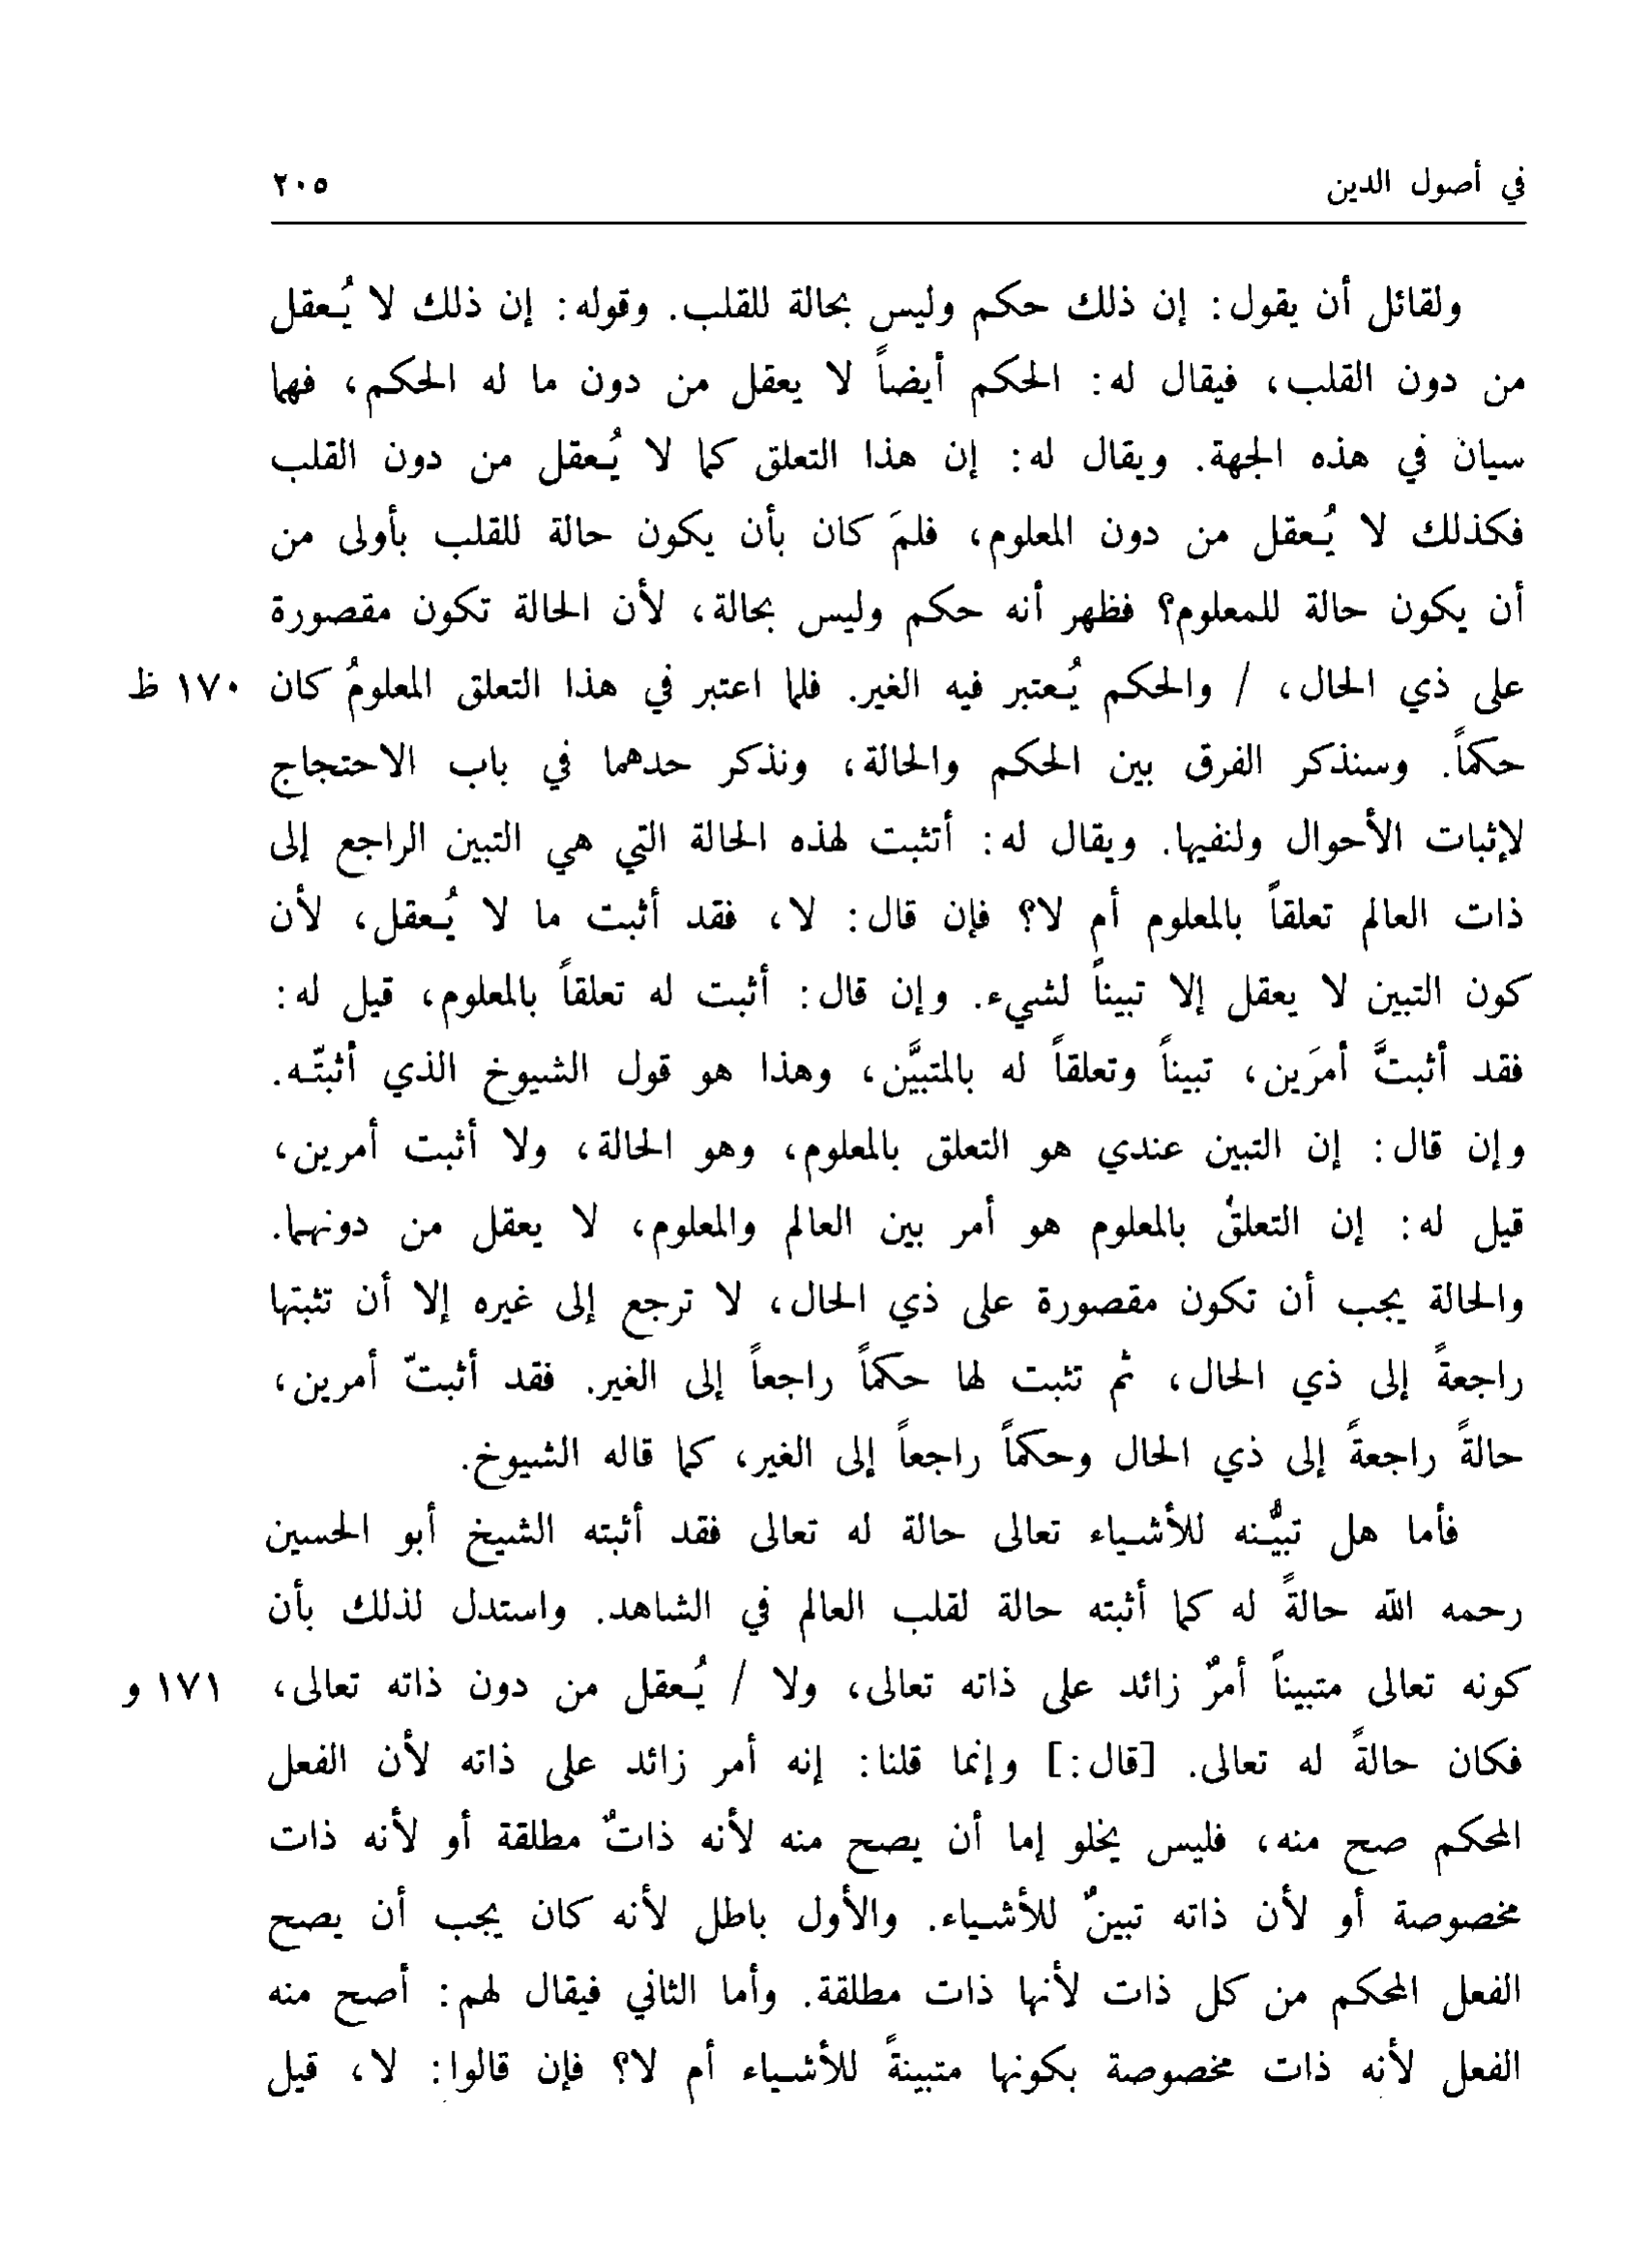 في أصول الدين ٢٠٥
ولقائل أن يقول: إن ذلك حكم وليس بحالة للقلب. وقوله: إن ذلك لا يُعقل
من دون القلب، فيقال له: الحكم أيضاً لا يعقل من دون ما له الحكم، فهما
سيان في هذه الجهة. ويقال له: إن هذا التعلق كما لا يُعقل من دون القلب
فكذلك لا يُعقل من دون المعلوم، فلمَ كان بأن يكون حالة للقلب بأولى من
أن يكون حالة للمعلوم؟ فظهر أنه حكم وليس بحالة، لأن الحالة تكون مقصورة
على ذي الحال، / والحكم يُعتبر فيه الغير. فلما اعتبر في هذا التعلق المعلومُ كان ١٧٠ ظ
حكماً. وسنذكر الفرق بين الحكم والحالة، ونذكر حدهما في باب الاحتجاج
لإثبات الأحوال ولنفيها. ويقال له: أتثبت لهذه الحالة التي هي التبين الراجع إلى
ذات العالم تعلقاً بالمعلوم أم لا؟ فإن قال: لا، فقد أثبت ما لا يُعقل، لأن
كون التبين لا يعقل إلا تبيناً لشيء. وإن قال: أثبت له تعلقاً بالمعلوم، قيل له:
فقد أثبتَّ أمرَين، تبيناً وتعلقاً له بالمتبيَّن، وهذا هو قول الشيوخ الذي أثبتّه.
وإن قال: إن التبين عندي هو التعلق بالمعلوم، وهو الحالة، ولا أثبت أمرين،
قيل له: إن التعلقُ بالمعلوم هو أمر بين العالم والمعلوم، لا يعقل من دونهما.
والحالة يجب أن تكون مقصورة على ذي الحال، لا ترجع إلى غيره إلا أن تثبتها
راجعةً إلى ذي الحال، ثم تثبت لها حكماً راجعاً إلى الغير. فقد أثبتّ أمرين،
حالةً راجعةً إلى ذي الحال وحكماً راجعاً إلى الغير، كما قاله الشيوخ.
فأما هل تبيُّنه للأشياء تعالى حالة له تعالى فقد أثبته الشيخ أبو الحسين
رحمه الله حالةً له كما أثبته حالة لقلب العالم في الشاهد. واستدل لذلك بأن
كونه تعالى متبيناً أمرٌ زائد على ذاته تعالى، ولا / يُعقل من دون ذاته تعالى، ١٧١ و
فكان حالةً له تعالى. [قال:] وإنما قلنا: إنه أمر زائد على ذاته لأن الفعل
المحكم صح منه، فليس يخلو إما أن يصح منه لأنه ذاتٌ مطلقة أو لأنه ذات
مخصوصة أو لأن ذاته تبينٌ للأشياء. والأول باطل لأنه كان يجب أن يصح
الفعل المحكم من كل ذات لأنها ذات مطلقة. وأما الثاني فيقال لهم: أصح منه
الفعل لأنه ذات مخصوصة بكونها متبينةً للأشياء أم لا؟ فإن قالوا: لا، قيل